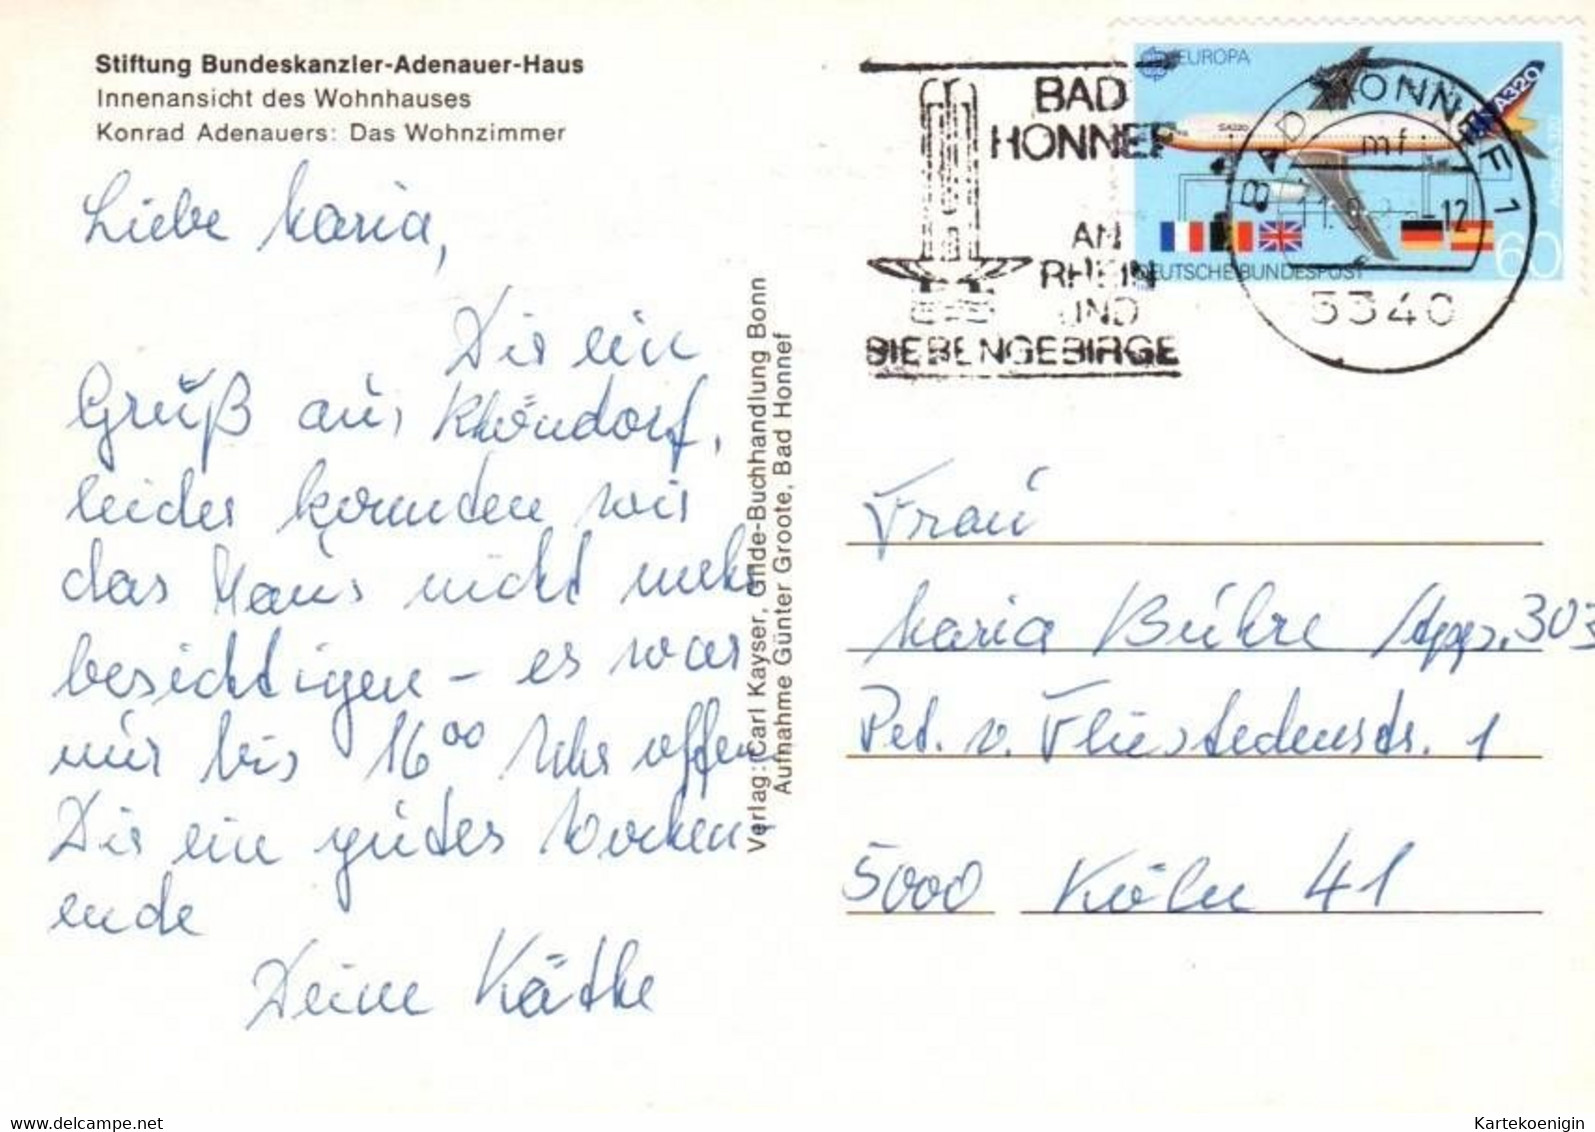 Stiftung Bundeskanzler-Adenauer-Haus
Innenansicht des Wohnhauses
Konrad Adenauers: Das Wohnzimmer
Liebe Maria,
Dir ein
Gruß aus Rhöndorf,
leider konnten wir
das Haus nicht mehr
besichtigen - es war
nur bis 16⁰⁰ Uhr offen
Dir ein gutes Wochen-
ende
Deine Käthe
Verlag: Carl Kayser, Gilde-Buchhandlung Bonn
Aufnahme Günter Groote, Bad Honnef
BAD
HONNEF
AN
RHEIN
UND
SIEBENGEBIRGE
EUROPA
A320
DEUTSCHE BUNDESPOST
60
BAD HONNEF 1
mf
-12
5340
Frau
Maria Bühre App. 303
Pet. v. Fliestedenstr. 1
5000 Köln 41
delcampe.net
Kartekoenigin